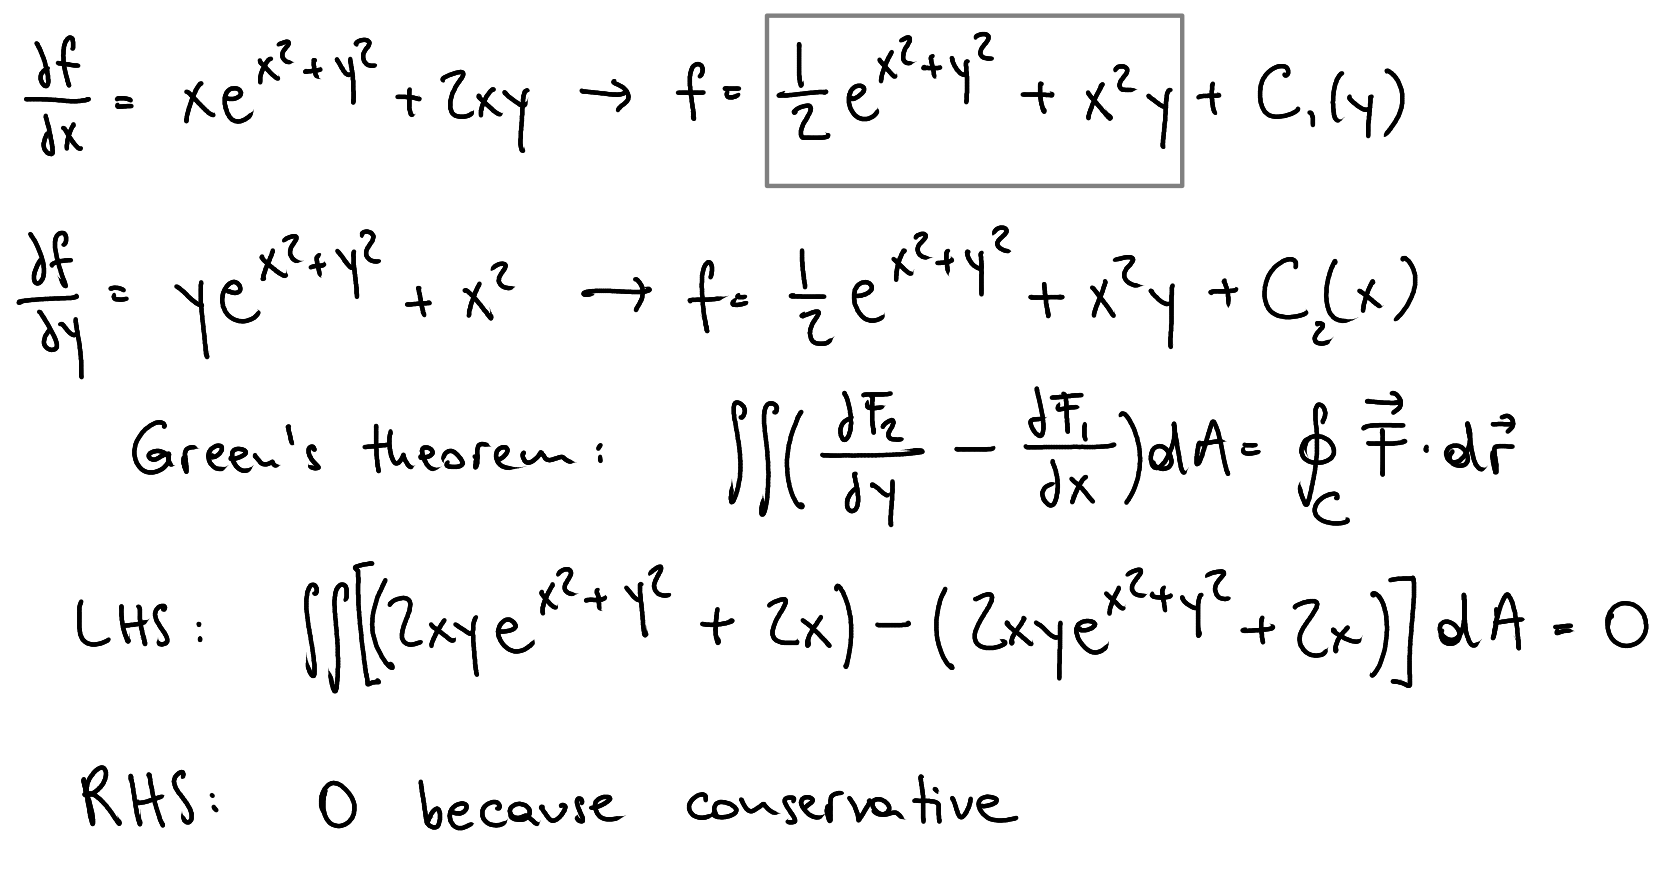 df/dx = xe^(x²+y²) + 2xy → f = 1/2 e^(x²+y²) + x²y + C₁(y)
df/dy = ye^(x²+y²) + x² → f = 1/2 e^(x²+y²) + x²y + C₂(x)
Green's theorem: ∬(dF₂/dy − dF₁/dx)dA = ∮_C F⃗ · dr⃗
LHS: ∬[(2xye^(x²+y²) + 2x) − (2xye^(x²+y²) + 2x)] dA = 0
RHS: 0 because conservative